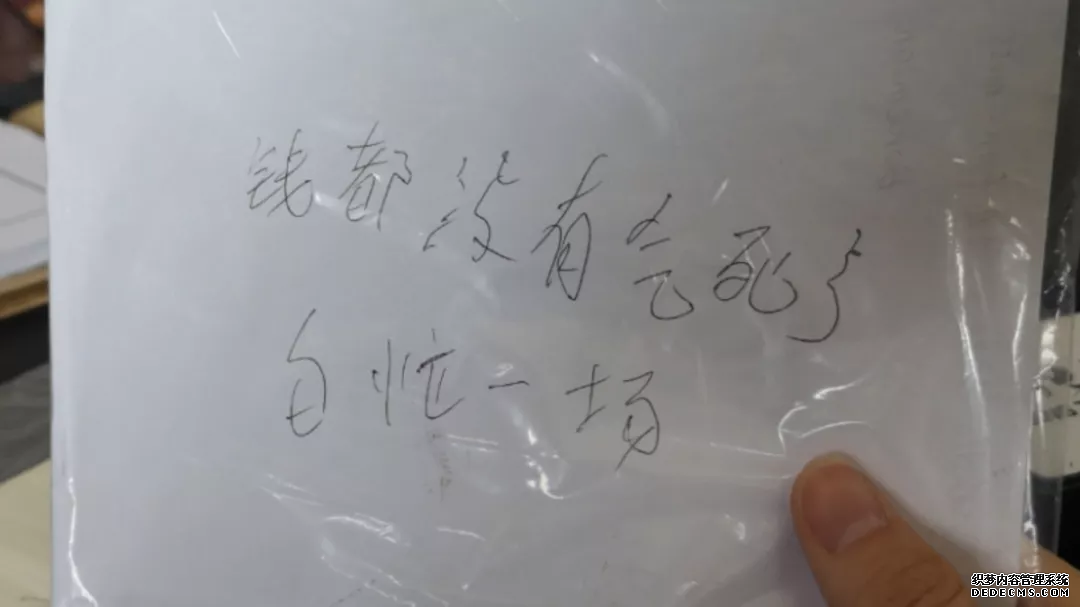 钱都没有气死了
白忙一场
织梦内容管理系统
DEDECMS.COM